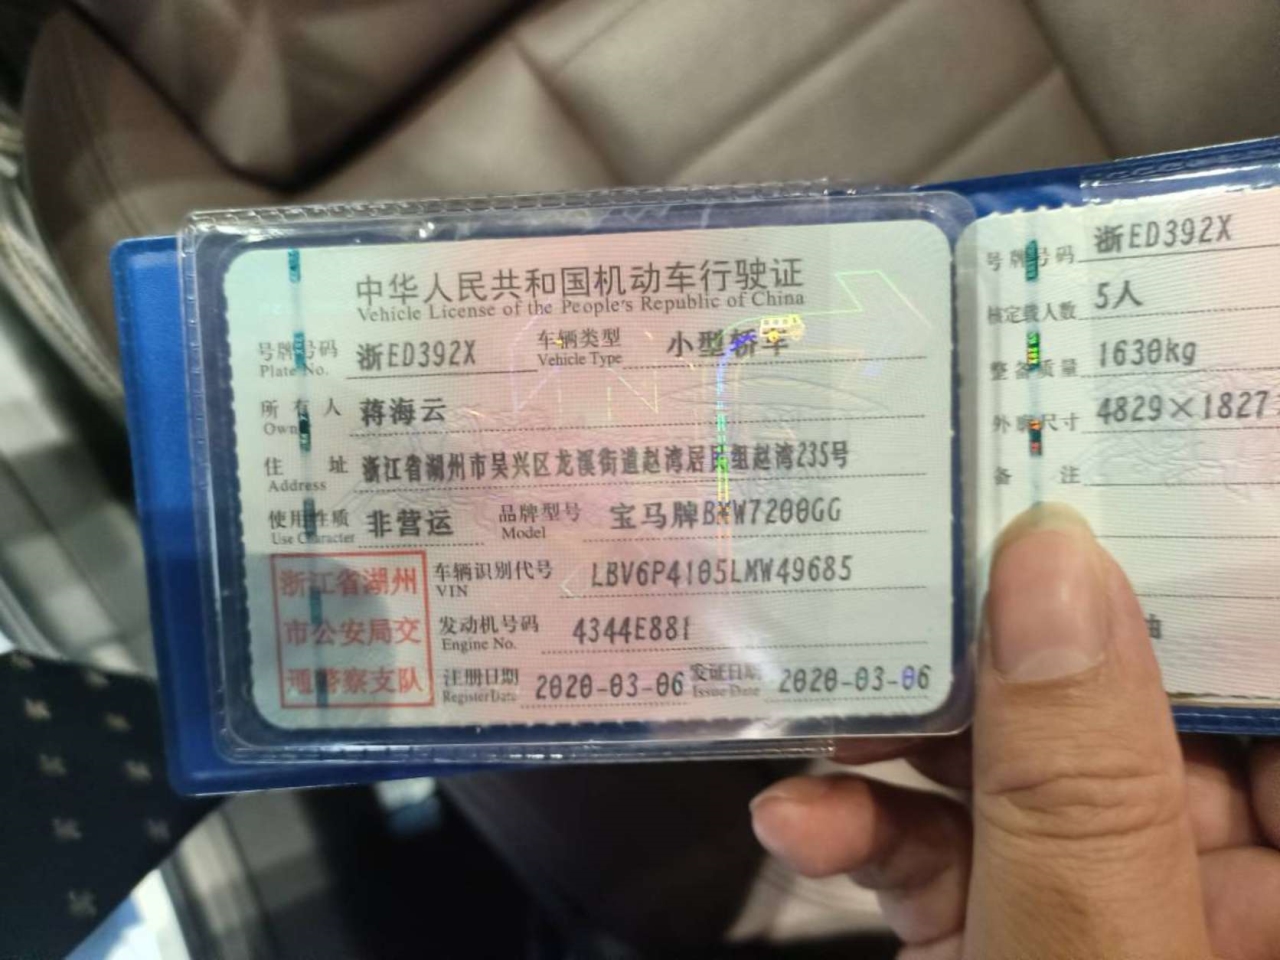 中华人民共和国机动车行驶证
Vehicle License of the People's Republic of China
号牌号码 浙ED392X 车辆类型 小型轿车
Plate No. Vehicle Type
所有人 蒋海云
Owner
住址 浙江省湖州市吴兴区龙溪街道赵湾居民组赵湾235号
Address
使用性质 非营运 品牌型号 宝马牌BMW7200GG
Use Character Model
浙江省湖州
市公安局交
通警察支队
车辆识别代号 LBV6P4105LMW49685
VIN
发动机号码 4344E881
Engine No.
注册日期 2020-03-06 发证日期 2020-03-06
Register Date Issue Date
号牌号码 浙ED392X
核定载人数 5人
整备质量 1630kg
外廓尺寸 4829×1827
备注
油